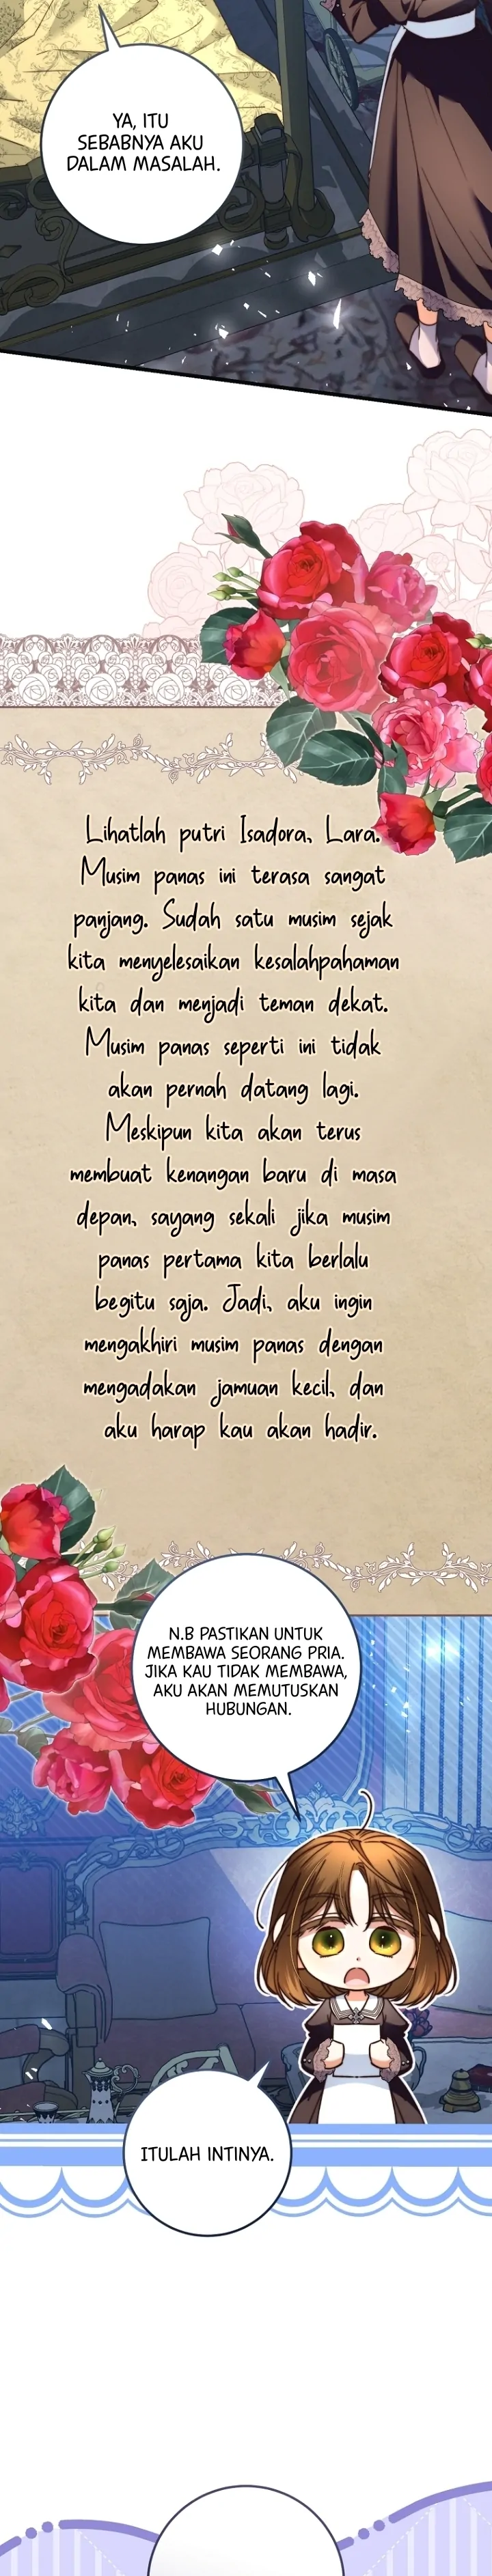 YA, ITU
SEBABNYA AKU
DALAM MASALAH.
Lihatlah putri Isadora, Lara.
Musim panas ini terasa sangat
panjang. Sudah satu musim sejak
kita menyelesaikan kesalahpahaman
kita dan menjadi teman dekat.
Musim panas seperti ini tidak
akan pernah datang lagi.
Meskipun kita akan terus
membuat kenangan baru di masa
depan, sayang sekali jika musim
panas pertama kita berlalu
begitu saja. Jadi, aku ingin
mengakhiri musim panas dengan
mengadakan jamuan kecil, dan
aku harap kau akan hadir.
N.B PASTIKAN UNTUK
MEMBAWA SEORANG PRIA.
JIKA KAU TIDAK MEMBAWA,
AKU AKAN MEMUTUSKAN
HUBUNGAN.
ITULAH INTINYA.